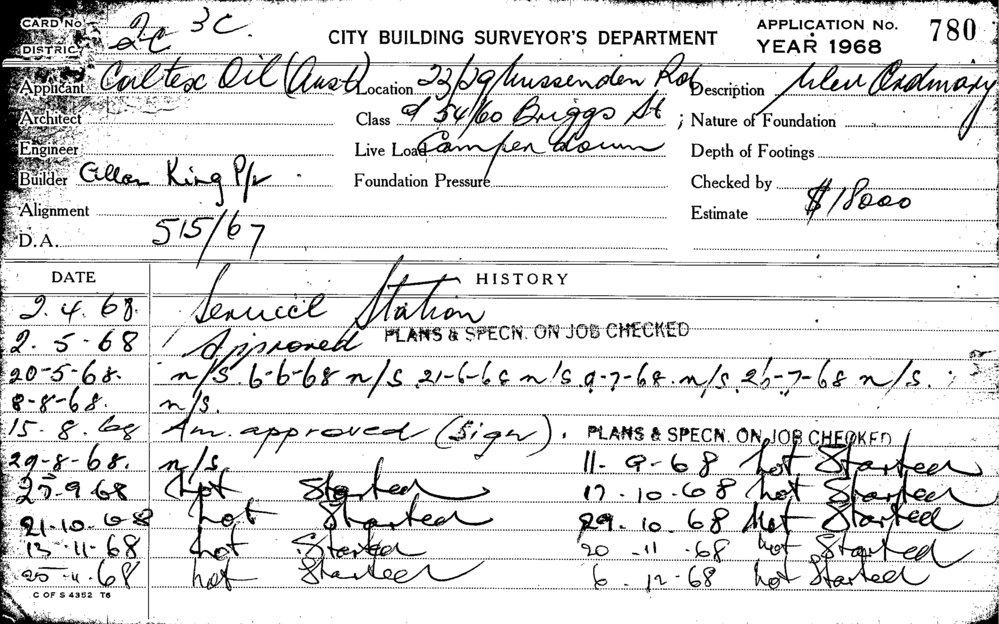 CARD No. 2C 3C. CITY BUILDING SURVEYOR'S DEPARTMENT APPLICATION No. 780
DISTRICT 2C YEAR 1968
Applicant Caltex Oil (Aust) Location 23/29 Missenden Rd Description New Ordinary
Architect Class & 54/60 Briggs St ; Nature of Foundation
Engineer Live Load Camperdown Depth of Footings
Builder Allan King P/L Foundation Pressure Checked by
Alignment Estimate $18000
D.A. 515/67
DATE HISTORY
2.4.68. Service Station
2.5-68 Approved PLANS & SPECN. ON JOB CHECKED
20-5-68. n/s. 6-6-68 n/s. 21-6-68 n/s. 9-7-68. n/s. 26-7-68 n/s.
8-8-68. n/s.
15.8.68 Am. approved (Sign). PLANS & SPECN. ON JOB CHECKED
29-8-68. n/s. 11-9-68 Not Started
25-9-68 Not Started 17.10.68 Not Started
21-10-68 Not Started 29.10.68 Not Started
13-11-68 Not Started 20-11-68 Not Started
25-11-68 Not Started 6.12-68 Not Started
C OF S 4352 T6